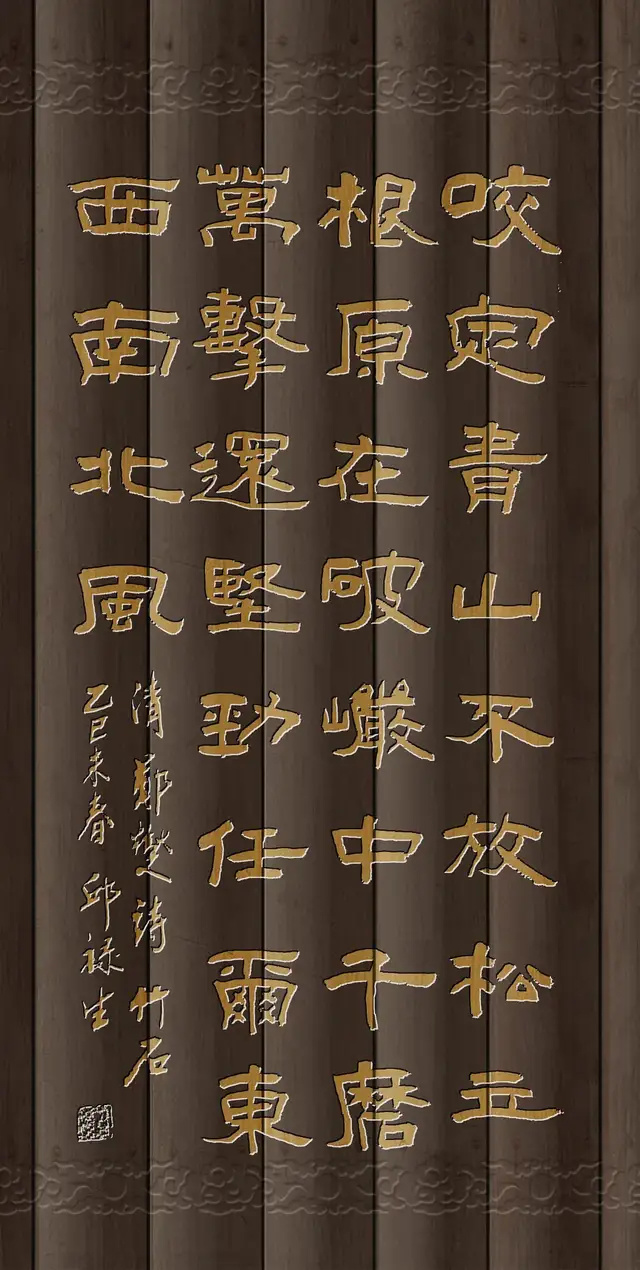 咬定青山不放松立
根原在破巗中千磨
萬擊還堅劲任爾東
西南北風
清鄭燮詩竹石
乙巳未春邱禄生